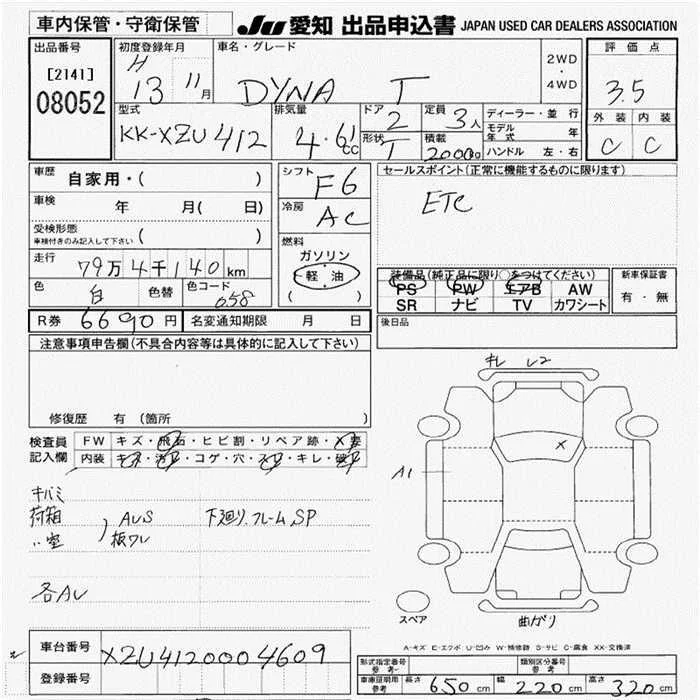 車内保管・守衛保管
JU 愛知 出品申込書 JAPAN USED CAR DEALERS ASSOCIATION
出品番号
[2141]
08052
初度登録年月
H
13 11月
車名・グレード
DYNA T
2WD
・
4WD
評価点
3.5
外装 内装
C C
型式
KK-XZU412
排気量
4.61
CC
ドア
2
形状
T
定員
3人
積載
2000kg
ディーラー・並行
モデル年式 年
ハンドル 左・右
車歴 自家用・( )
車検 年 月( 日)
受検形態
車検付きのみ記入して下さい ( )
走行 79万4千140km
色 白 色替 色コード 058
R券 6690円 名変通知期限 月 日
シフト F6
冷房 AC
燃料
ガソリン
軽油
( )
セールスポイント(正常に機能するものに限ります)
ETC
装備品(純正品に限り○をつけてください)
PS PW エアB AW
SR ナビ TV カワシート
新車保証書
有・無
後日品
注意事項申告欄(不具合内容等は具体的に記入して下さい)
修復歴 有(箇所 )
検査員
記入欄
FW キズ・飛石・ヒビ割・リペア跡・X要
内装 キズ・汚れ・コゲ・穴・スレ・キレ・破れ
キバミ
荷箱 AUS 下廻り.フレームSP
〃室 板ワレ
各AU
キレ レ2
X
A1
スペア
曲がり
A-キズ E-エクボ U-凹み W-補修跡 S-サビ C-腐食 XX-交換済
車台番号 XZU4120004609
登録番号
形式指定番号
参考
類別区分番号
参考
車庫証明用
参考
長さ 650cm 幅 220cm 高さ 320cm